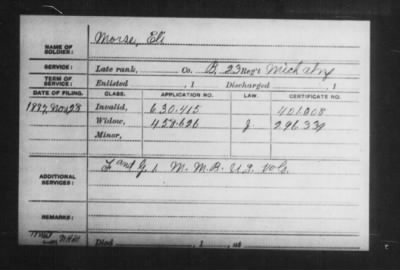 NAME OF SOLDIER: Morse, Eli
SERVICE: Late rank, Co. B, 23 Reg't Mich Inf
TERM OF SERVICE: Enlisted , 1 Discharged , 1
DATE OF FILING. CLASS. APPLICATION NO. LAW. CERTIFICATE NO.
1887, Nov 28 Invalid, 630.415 401.008
Widow, 458.626 J 296.339
Minor,
ADDITIONAL SERVICES: F and G, 1 M.M.B. U.S. Vols.
REMARKS:
Died , 1 , at